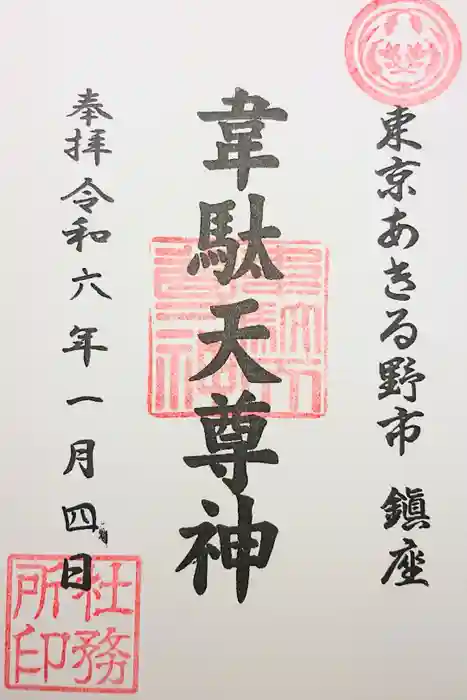 東京あきる野市 鎮座
韋駄天尊神
奉拝 令和六年一月四日
社務所印